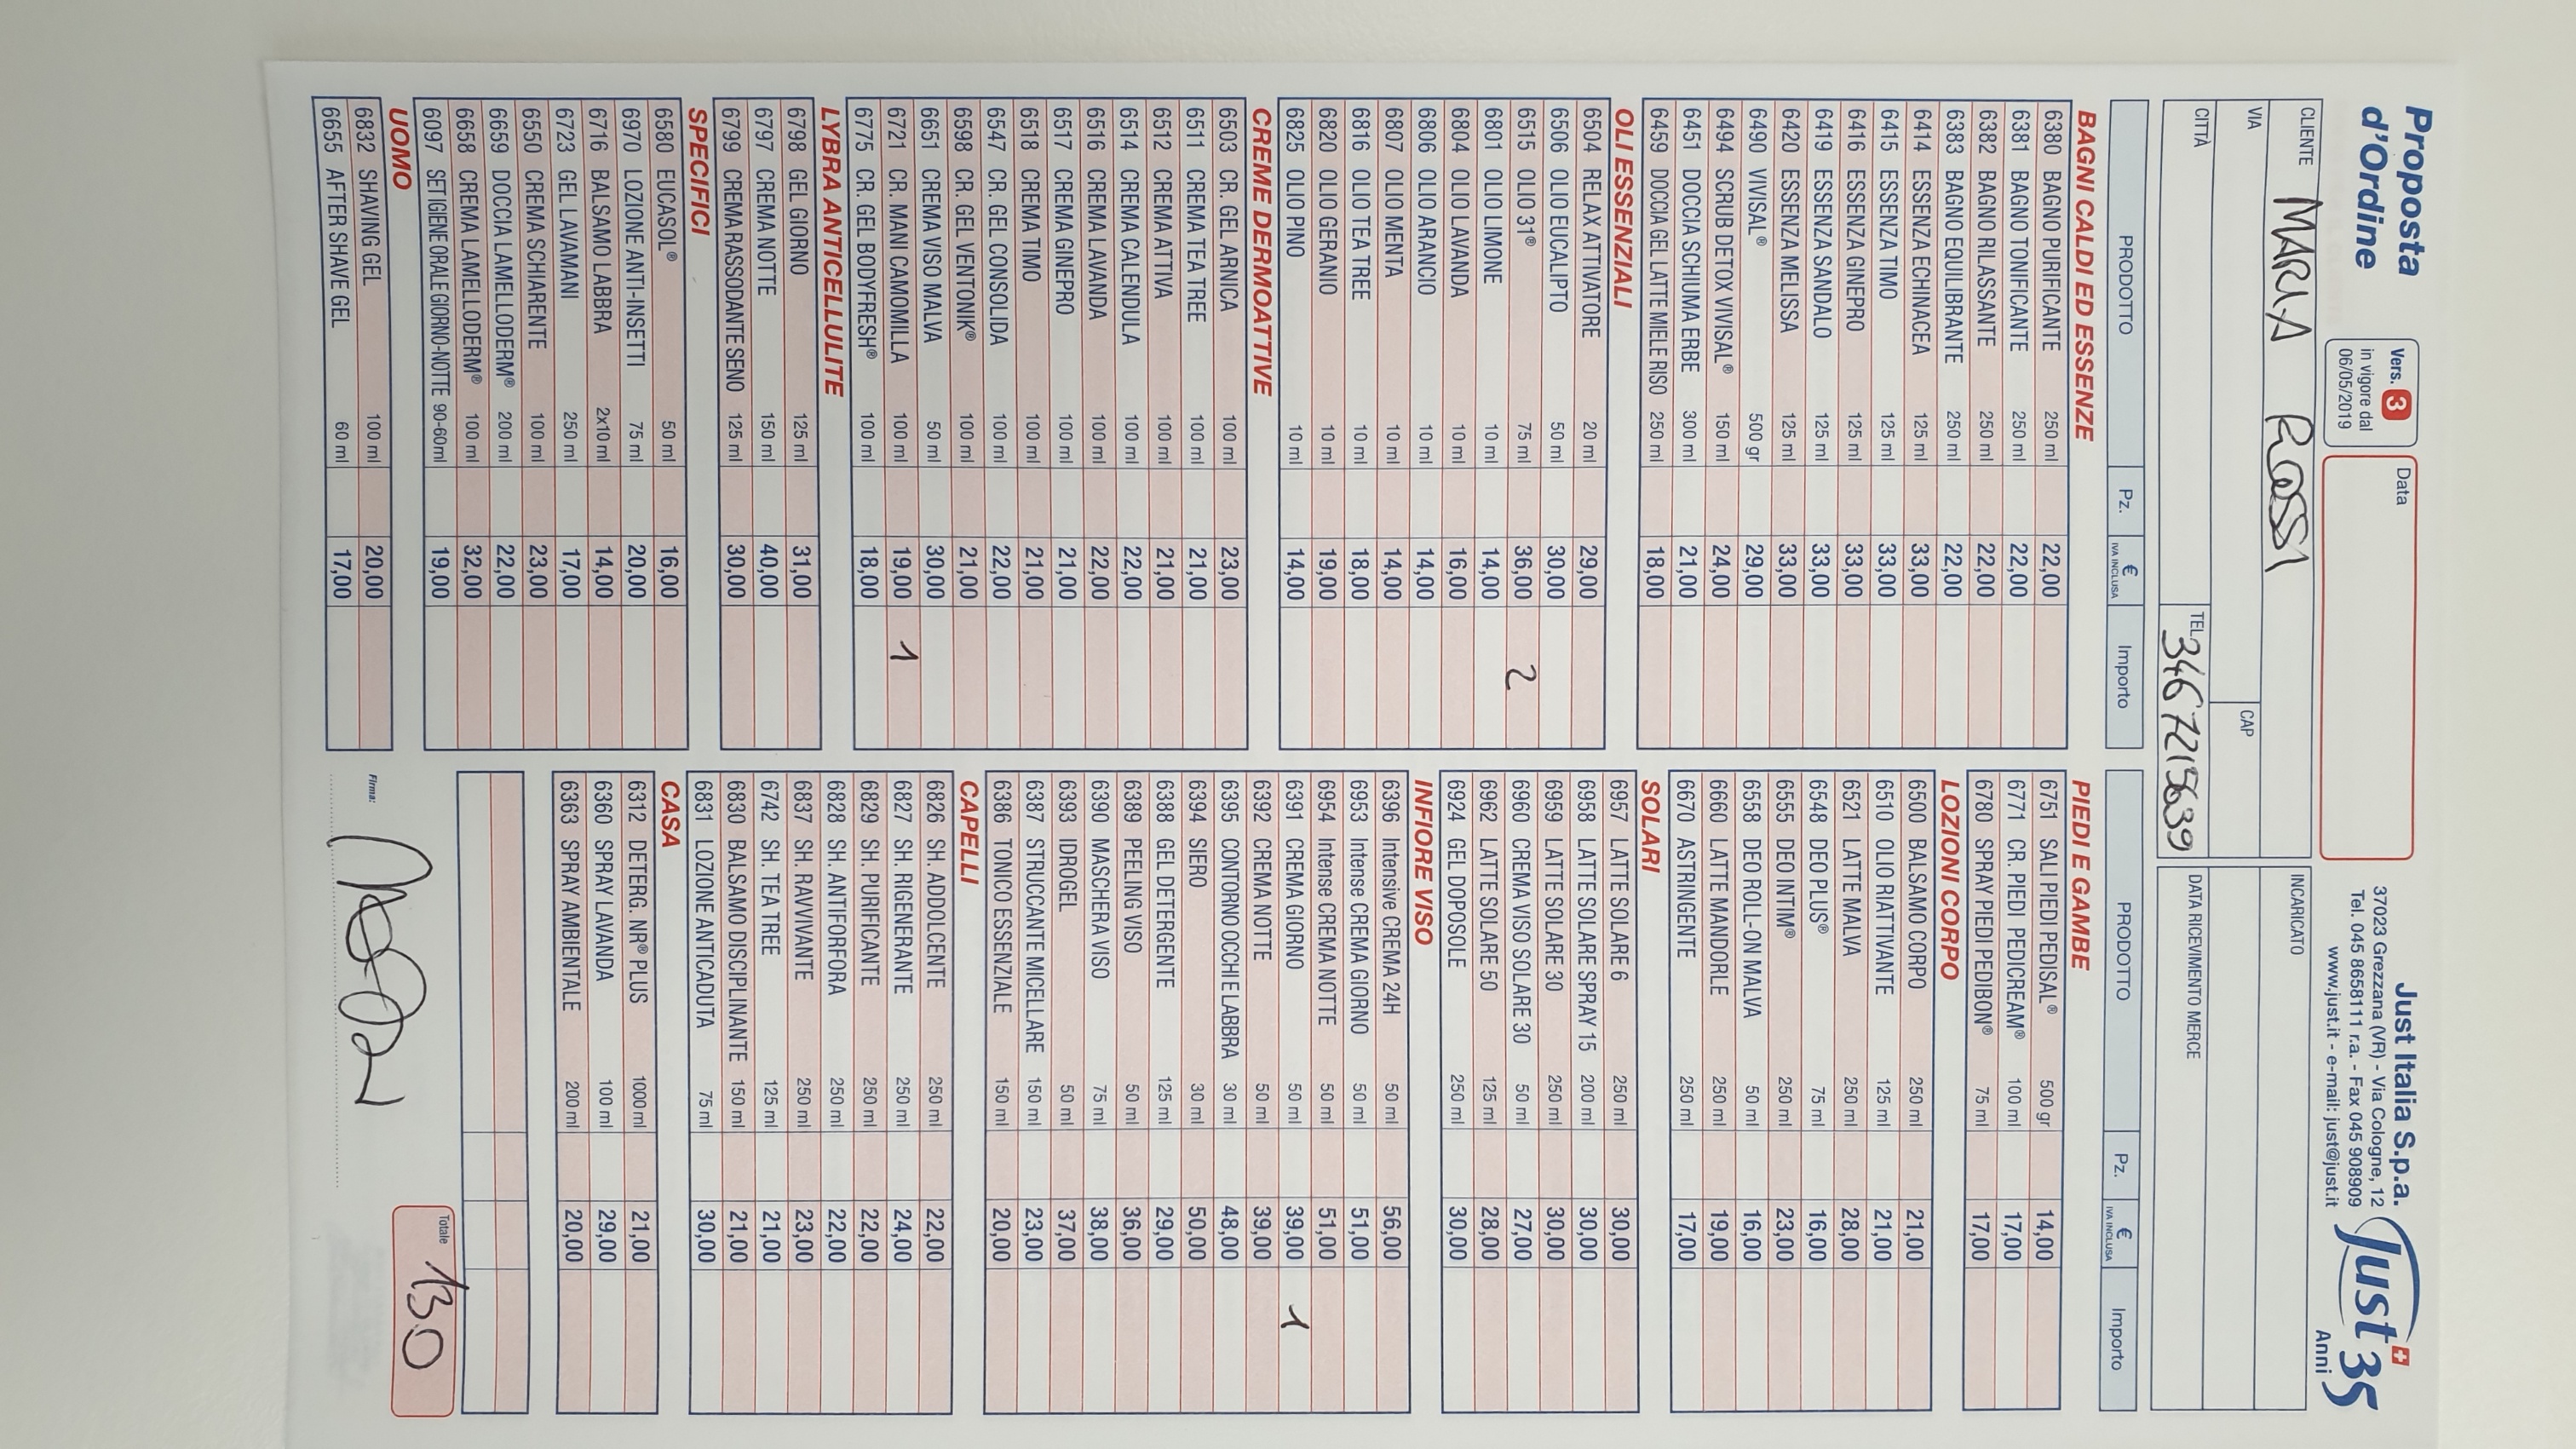 Proposta
d'Ordine
Vers. 3
in vigore dal
06/05/2019
Data
Just Italia S.p.a.
37023 Grezzana (VR) - Via Cologne, 12
Tel. 045 8658111 r.a. - Fax 045 908909
www.just.it - e-mail: just@just.it
Just 35
Anni
CLIENTE MARIA ROSSI
VIA
CAP
CITTÀ
TEL 3467215639
INCARICATO
DATA RICEVIMENTO MERCE
PRODOTTO Pz. € IVA INCLUSA Importo
BAGNI CALDI ED ESSENZE
6380 BAGNO PURIFICANTE 250 ml 22,00
6381 BAGNO TONIFICANTE 250 ml 22,00
6382 BAGNO RILASSANTE 250 ml 22,00
6383 BAGNO EQUILIBRANTE 250 ml 22,00
6414 ESSENZA ECHINACEA 125 ml 33,00
6415 ESSENZA TIMO 125 ml 33,00
6416 ESSENZA GINEPRO 125 ml 33,00
6419 ESSENZA SANDALO 125 ml 33,00
6420 ESSENZA MELISSA 125 ml 33,00
6490 VIVISAL® 500 gr 29,00
6494 SCRUB DETOX VIVISAL® 150 ml 24,00
6451 DOCCIA SCHIUMA ERBE 300 ml 21,00
6459 DOCCIA GEL LATTE MIELE RISO 250 ml 18,00
OLI ESSENZIALI
6504 RELAX ATTIVATORE 20 ml 29,00
6506 OLIO EUCALIPTO 50 ml 30,00
6515 OLIO 31® 75 ml 36,00 2
6801 OLIO LIMONE 10 ml 14,00
6804 OLIO LAVANDA 10 ml 16,00
6806 OLIO ARANCIO 10 ml 14,00
6807 OLIO MENTA 10 ml 14,00
6816 OLIO TEA TREE 10 ml 18,00
6820 OLIO GERANIO 10 ml 19,00
6825 OLIO PINO 10 ml 14,00
CREME DERMOATTIVE
6503 CR. GEL ARNICA 100 ml 23,00
6511 CREMA TEA TREE 100 ml 21,00
6512 CREMA ATTIVA 100 ml 21,00
6514 CREMA CALENDULA 100 ml 22,00
6516 CREMA LAVANDA 100 ml 22,00
6517 CREMA GINEPRO 100 ml 21,00
6518 CREMA TIMO 100 ml 21,00
6547 CR. GEL CONSOLIDA 100 ml 22,00
6598 CR. GEL VENTONIK® 100 ml 21,00
6651 CREMA VISO MALVA 50 ml 30,00
6721 CR. MANI CAMOMILLA 100 ml 19,00 1
6775 CR. GEL BODYFRESH® 100 ml 18,00
LYBRA ANTICELLULITE
6798 GEL GIORNO 125 ml 31,00
6797 CREMA NOTTE 150 ml 40,00
6799 CREMA RASSODANTE SENO 125 ml 30,00
SPECIFICI
6580 EUCASOL® 50 ml 16,00
6970 LOZIONE ANTI-INSETTI 75 ml 20,00
6716 BALSAMO LABBRA 2x10 ml 14,00
6723 GEL LAVAMANI 250 ml 17,00
6550 CREMA SCHIARENTE 100 ml 23,00
6659 DOCCIA LAMELLODERM® 200 ml 22,00
6658 CREMA LAMELLODERM® 100 ml 32,00
6097 SET IGIENE ORALE GIORNO-NOTTE 90-60ml 19,00
UOMO
6832 SHAVING GEL 100 ml 20,00
6655 AFTER SHAVE GEL 60 ml 17,00
PRODOTTO Pz. € IVA INCLUSA Importo
PIEDI E GAMBE
6751 SALI PIEDI PEDISAL® 500 gr 14,00
6771 CR. PIEDI PEDICREAM® 100 ml 17,00
6780 SPRAY PIEDI PEDIBON® 75 ml 17,00
LOZIONI CORPO
6500 BALSAMO CORPO 250 ml 21,00
6510 OLIO RIATTIVANTE 125 ml 21,00
6521 LATTE MALVA 250 ml 28,00
6548 DEO PLUS® 75 ml 16,00
6555 DEO INTIM® 250 ml 23,00
6558 DEO ROLL-ON MALVA 50 ml 16,00
6660 LATTE MANDORLE 250 ml 19,00
6670 ASTRINGENTE 250 ml 17,00
SOLARI
6957 LATTE SOLARE 6 250 ml 30,00
6958 LATTE SOLARE SPRAY 15 200 ml 30,00
6959 LATTE SOLARE 30 250 ml 30,00
6960 CREMA VISO SOLARE 30 50 ml 27,00
6962 LATTE SOLARE 50 125 ml 28,00
6924 GEL DOPOSOLE 250 ml 30,00
INFIORE VISO
6396 Intensive CREMA 24H 50 ml 56,00
6953 Intense CREMA GIORNO 50 ml 51,00
6954 Intense CREMA NOTTE 50 ml 51,00
6391 CREMA GIORNO 50 ml 39,00 1
6392 CREMA NOTTE 50 ml 39,00
6395 CONTORNO OCCHI E LABBRA 30 ml 48,00
6394 SIERO 30 ml 50,00
6388 GEL DETERGENTE 125 ml 29,00
6389 PEELING VISO 50 ml 36,00
6390 MASCHERA VISO 75 ml 38,00
6393 IDROGEL 50 ml 37,00
6387 STRUCCANTE MICELLARE 150 ml 23,00
6386 TONICO ESSENZIALE 150 ml 20,00
CAPELLI
6826 SH. ADDOLCENTE 250 ml 22,00
6827 SH. RIGENERANTE 250 ml 24,00
6829 SH. PURIFICANTE 250 ml 22,00
6828 SH. ANTIFORFORA 250 ml 22,00
6837 SH. RAVVIVANTE 250 ml 23,00
6742 SH. TEA TREE 125 ml 21,00
6830 BALSAMO DISCIPLINANTE 150 ml 21,00
6831 LOZIONE ANTICADUTA 75 ml 30,00
CASA
6312 DETERG. NR® PLUS 1000 ml 21,00
6360 SPRAY LAVANDA 100 ml 29,00
6363 SPRAY AMBIENTALE 200 ml 20,00
Totale 130
Firma: